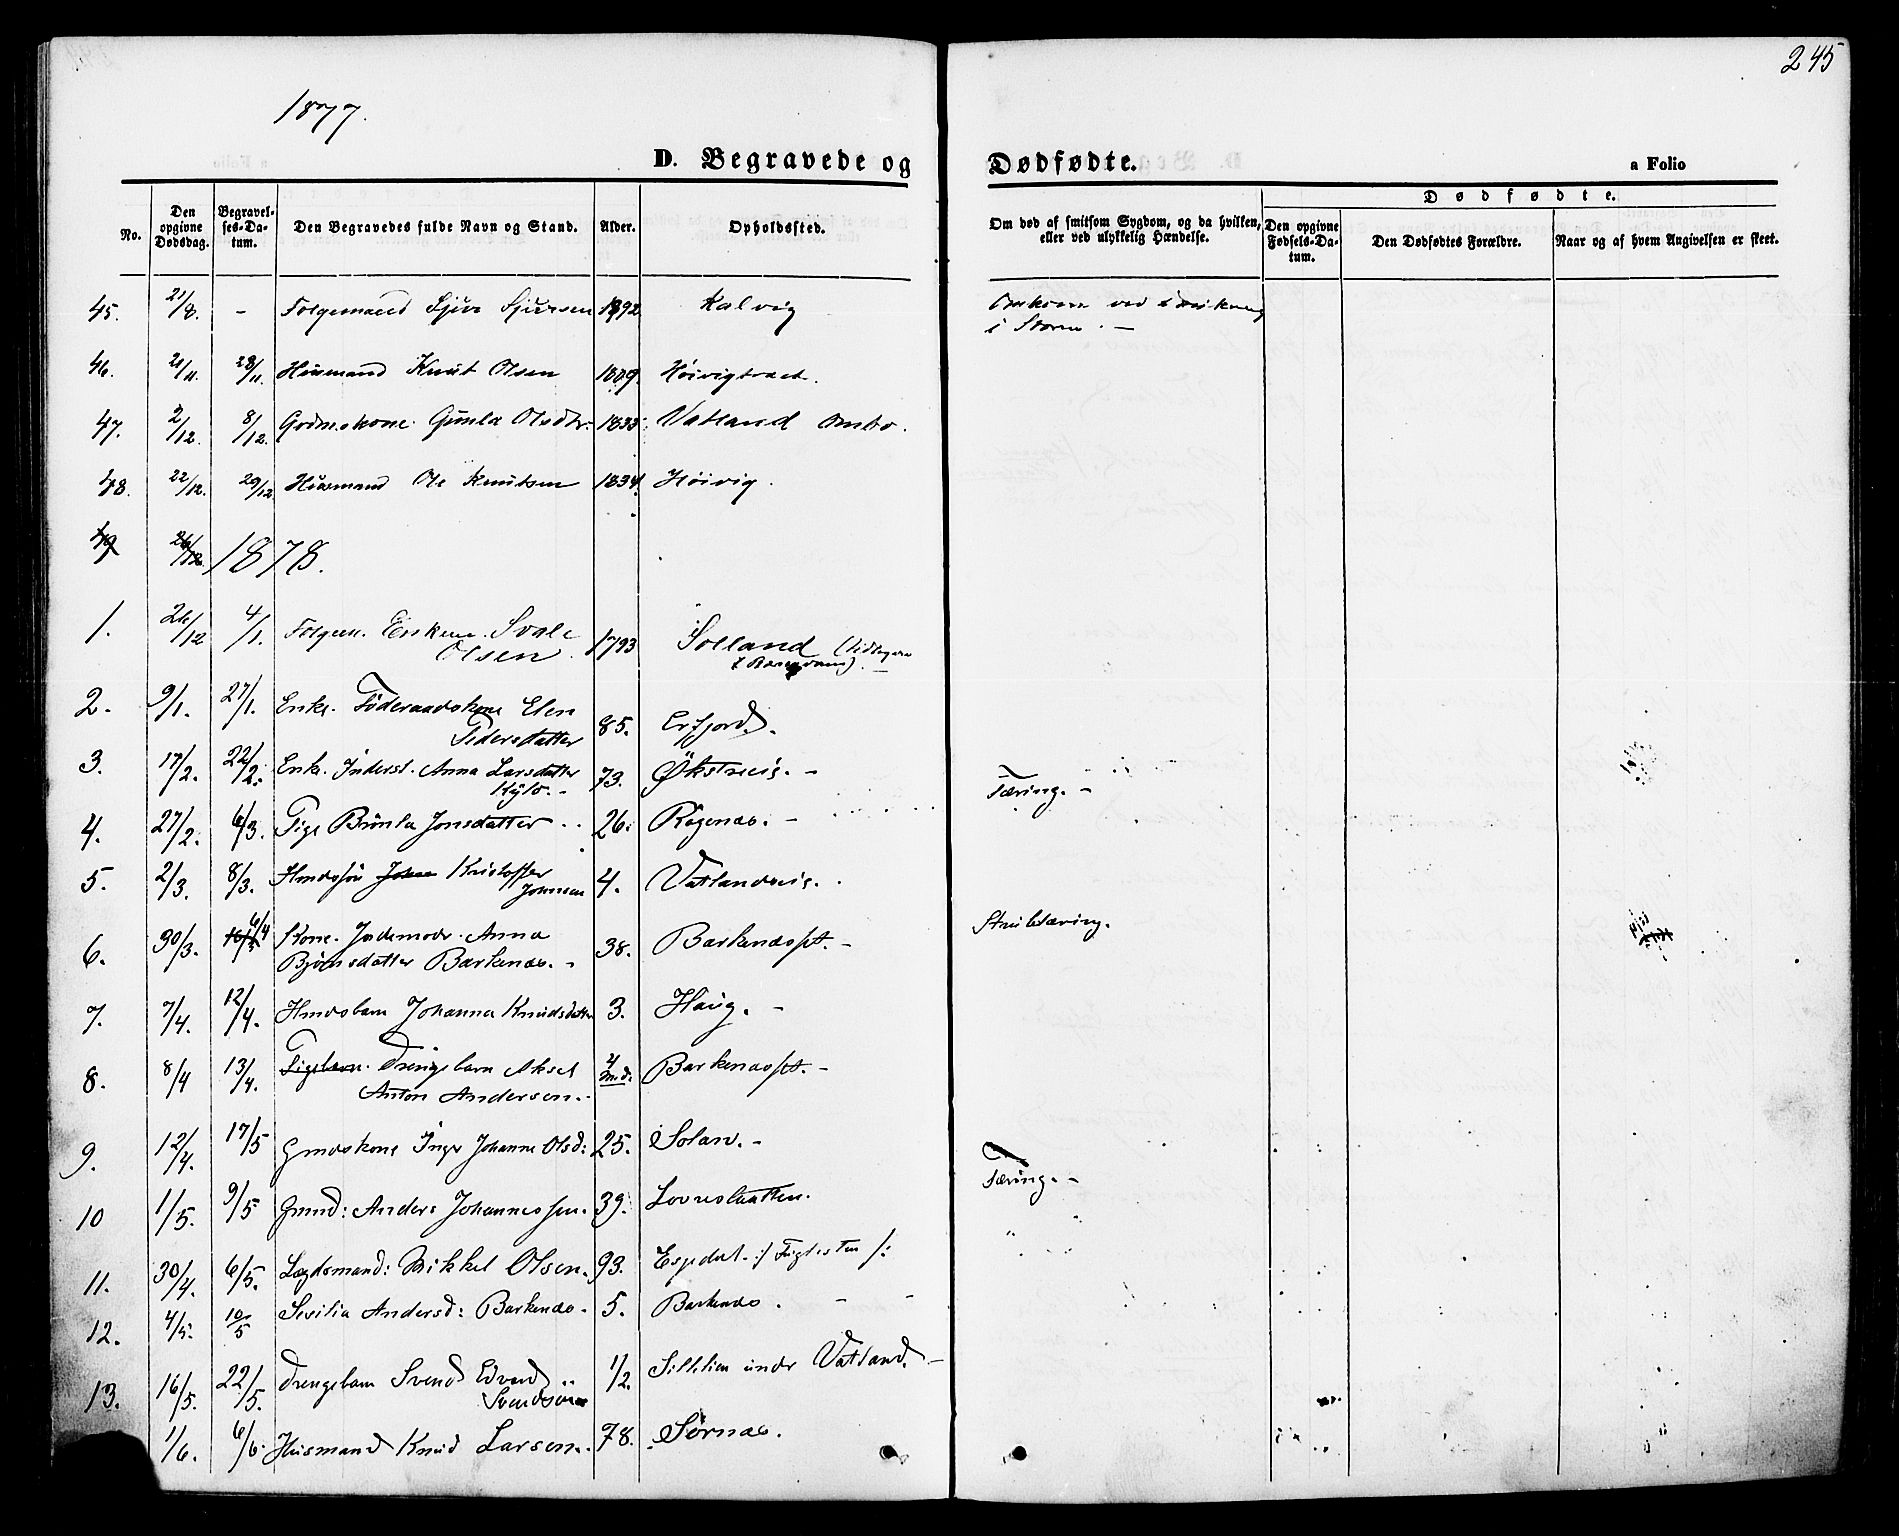 245
1877.
D. Begravede og Dødfødte.
a Folio
No.
Den opgivne Dødsdag.
Begravelses-Datum.
Den Begravedes fulde Navn og Stand.
Alder.
Opholdssted.
Om død af smitsom Sygdom, og da hvilken, eller ved ulykkelig Hændelse.
Dødfødte.
Den opgivne Fødsels-Datum.
Den Dødfødtes Forældre.
Naar og af hvem Angivelsen er skeet.
45. 21/8. - Folgemand Sjur Sjursen 1892 Kalvig Omkom ved
i Storm. -
46. 21/11. 28/11. Husmand Knut Olsen 1809. Hövigtraet.
47. 2/12. 8/12. Gdmskone Gunla Olsdtr. 1833 Vatland Ombo.
48. 22/12. 29/12 Husmand Ole Knutsen 1834. Höivig.
49 26/12.
1878.
1. 26/12 4/1. Folgem. Enkem. Svale Olsen. 1793 Solland
2. 9/1. 27/1. Enke. Föderaadskone Elen Pedersdatter 85. Erfjord.
3. 17/2. 22/2. Enke. Inderst. Anna Larsdatter 73. Økstrveis. - Tæring. -
4. 27/2. 6/3. Pige Brünla Jonsdatter 26. Ragenæs. -
5. 2/3. 8/3. Hmdssön John Kristoffer Johnsen 4. Vatlandsveis.
6. 30/3. 6/4 Kone. Jordemodr. Anna Björnsdatter Barkenæs. - 38. Barkenæspt. - Strubetæring.
7. 7/4. 12/4. Hmdsbarn Johanna Knudsdatter 3. Haug. -
8. 8/4 13/4. Pigebarn. Drengebarn Aksel Anton Andersen. - 4 Md. Barkenæspt. -
9. 12/4. 17/5 Gmdskone Inger Johanne Olsd: 25. Solan. - Tæring. -
10 1/5. 9/5 Gmd: Anders Johannessen. 39. Lovraslaatten. "
11. 30/4. 6/5. Lægdsmand: Mikkel Olsen. 93. Espedal :/ Fuglesten /:
12. 4/5. 10/5 Sesilia Andersd: Barkenæs. 5. Barkenæs. - -
13. 16/5. 22/5. Drengebarn Svend Edvard Svendsen 1/2. Sillelien under Vatland. -
1/6. 6/6. Husmand Knud Larsen. 78. Sörnæs.